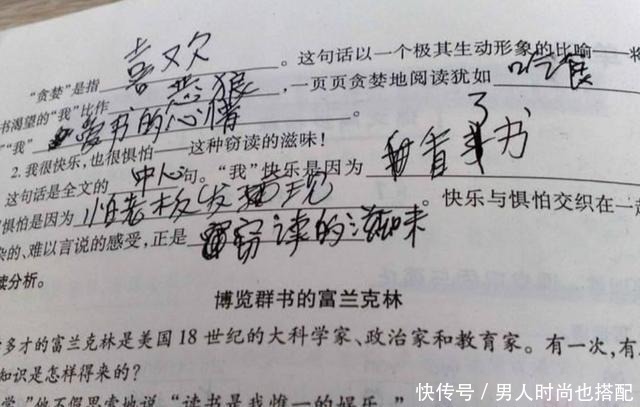 "贪婪"是指 喜欢 。这句话以一个极其生动形象的比喻——将
书渴望的"我"比作 恶狼 ,一页页贪婪地阅读犹如 吃食
"我" 爱书的心情 。
2. 我很快乐,也很惧怕——这种窃读的滋味!
这句话是全文的 中心 句。"我"快乐是因为 看了书
惧怕是因为 怕老板发现 。快乐与惧怕交织在一起
杂的、难以言说的感受,正是 窃读的滋味
读分析。
博览群书的富兰克林
多才的富兰克林是美国18世纪的大科学家、政治家和教育家。有一次,有
知识是怎样得来的?
他不假思索地说"读书是我惟一的娱乐
快传号／男人时尚也搭配